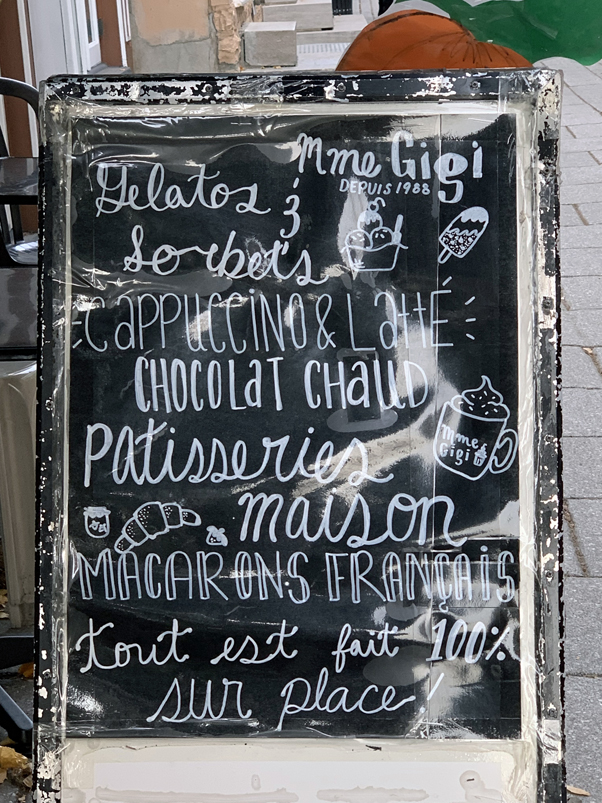 Mme Gigi
DEPUIS 1988
Gelatos
&
Sorbets
CAPPUCCINO & LattÉ
CHOCOLaT CHaUD
Mme
Gigi
Patisseries
maison
MACARONS FRANÇAiS
tout est fait 100%
sur place!